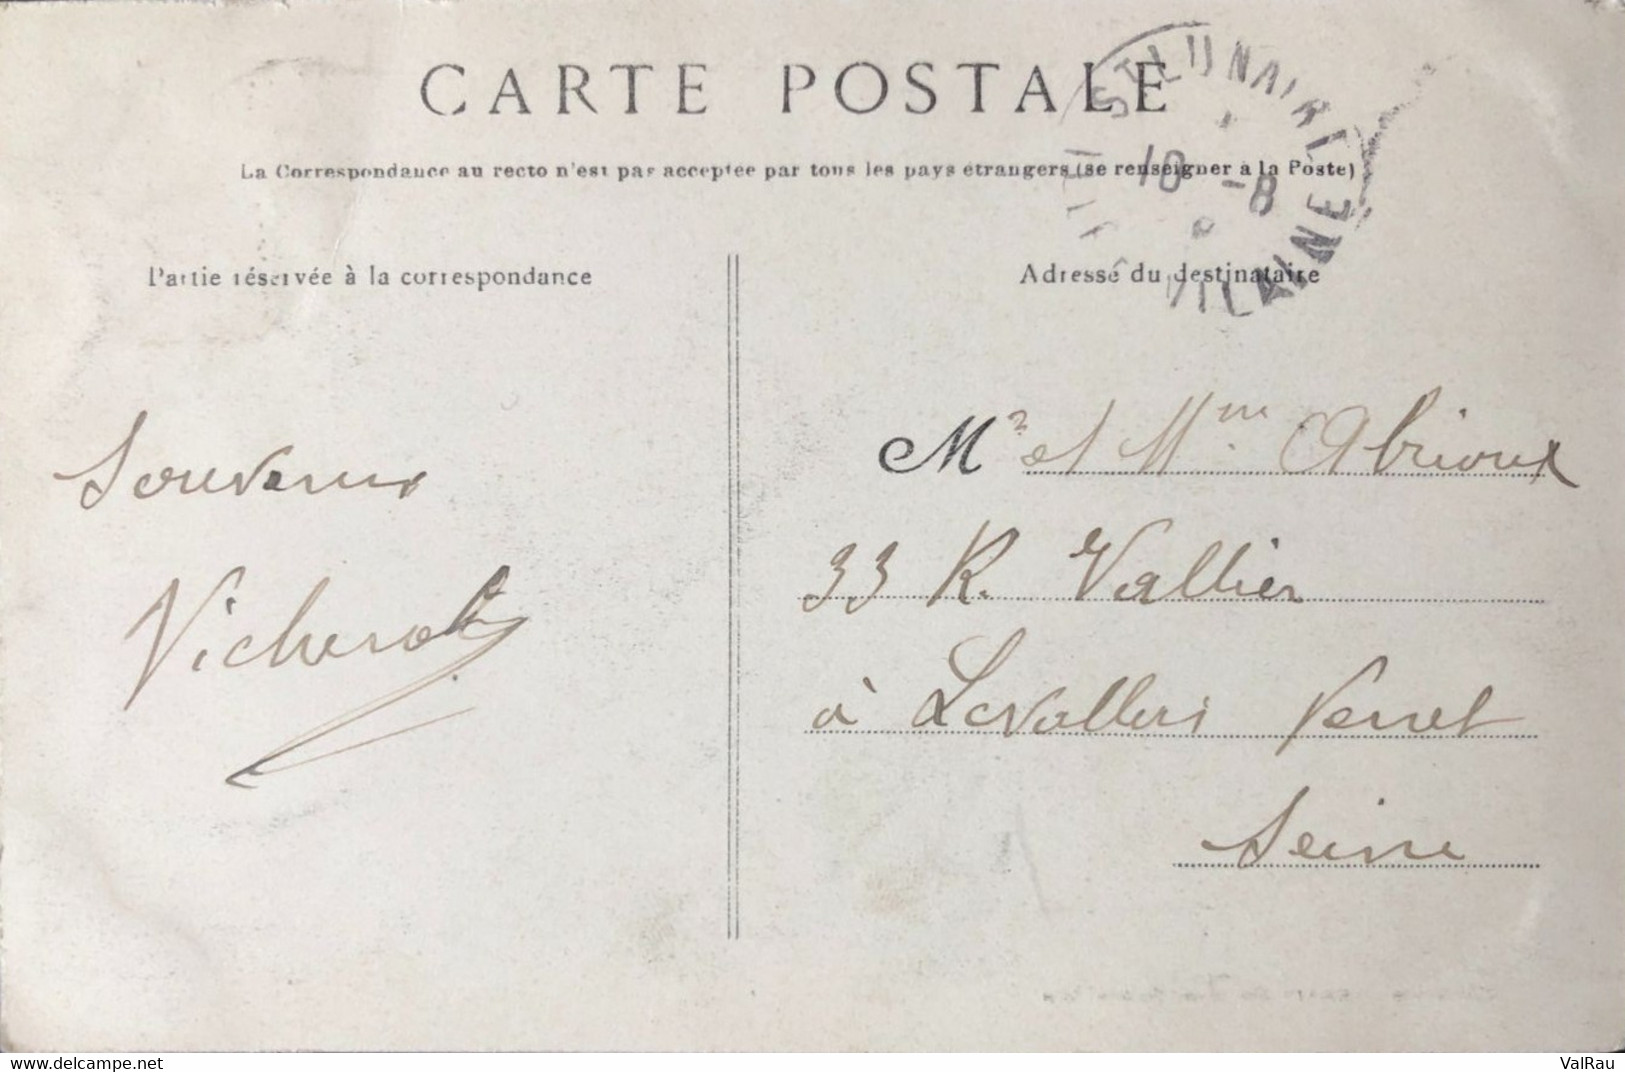 CARTE POSTALE
La Correspondance au recto n'est pas acceptée par tous les pays étrangers (se renseigner à la Poste)
Partie réservée à la correspondance
Adresse du destinataire
ST LUNAIRE
10 -8
VILAINE
Souvenir
Vicherat
Mr et Mme Abrioux
33 R. Vallier
à Levallois Perret
Seine
delcampe.net
ValRau